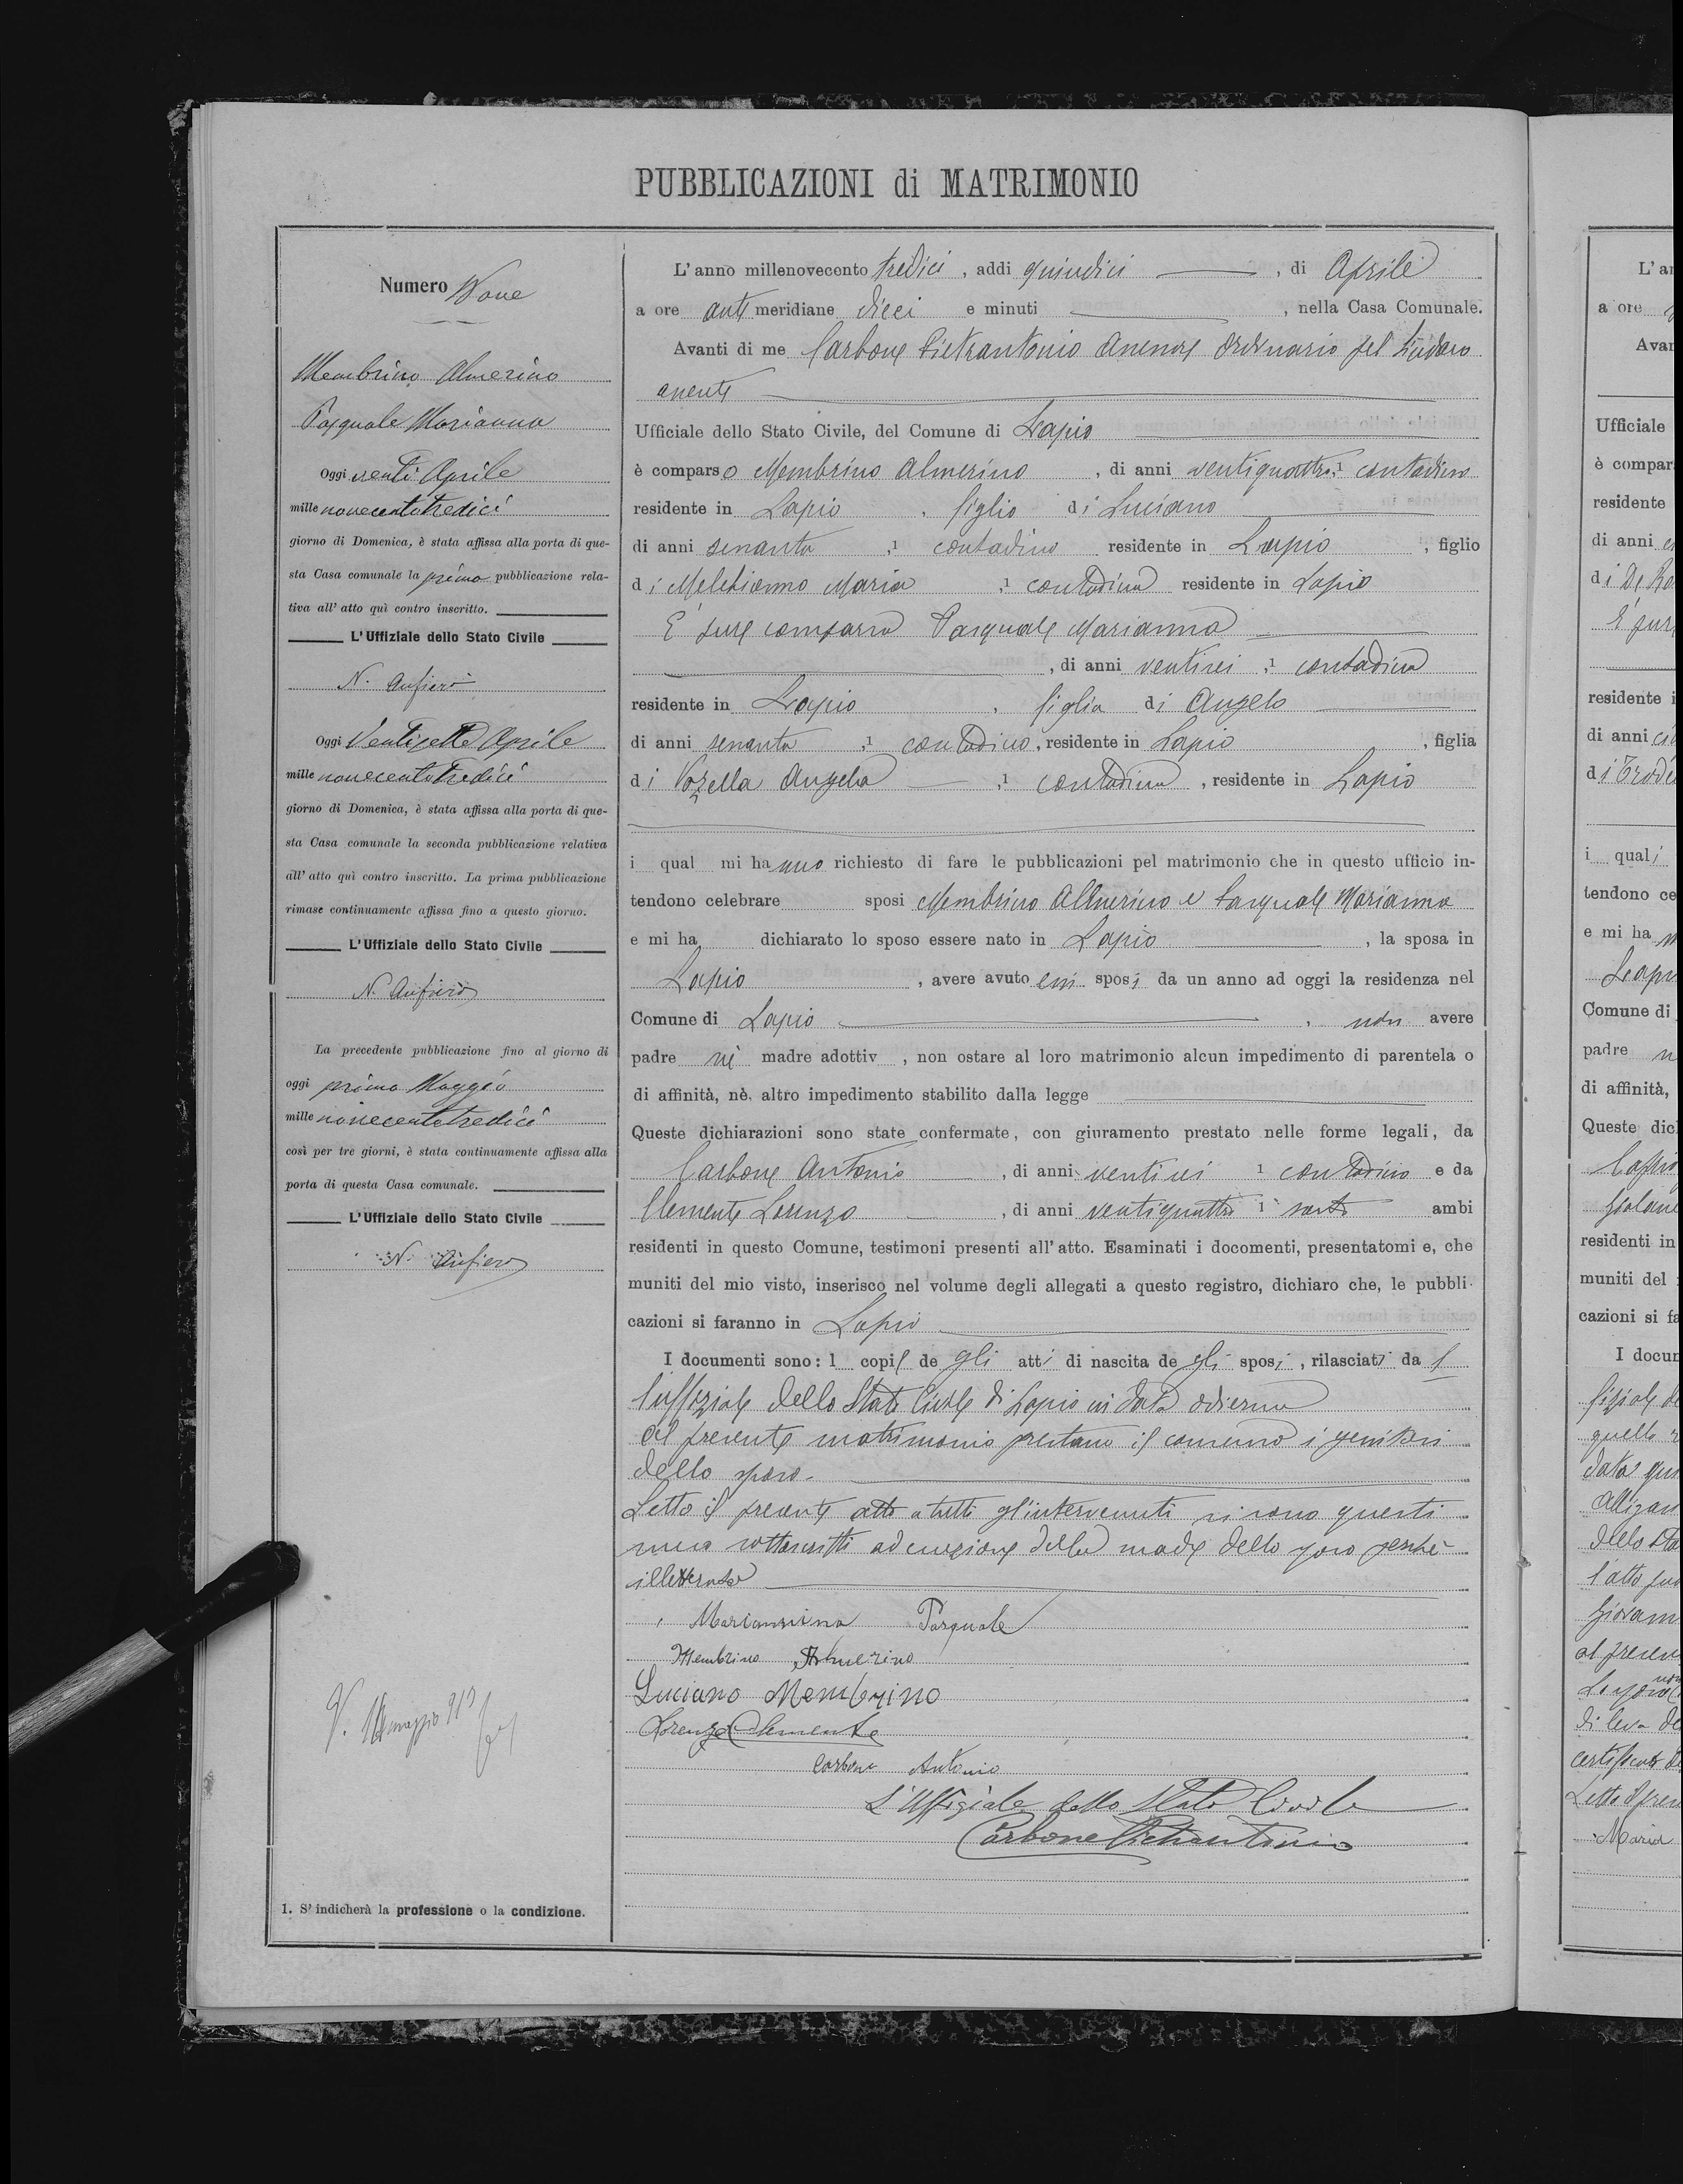 PUBBLICAZIONI di MATRIMONIO
Numero Nove
Membrino Almerino
Pasquale Marianna
Oggi venti Aprile
mille novecentotredici
giorno di Domenica, è stata affissa alla porta di que-
sta Casa comunale la prima pubblicazione rela-
tiva all' atto quì contro inscritto.
L'Uffiziale dello Stato Civile
N. Anfiero
Oggi Ventisette Aprile
mille novecentotredici
giorno di Domenica, è stata affissa alla porta di que-
sta Casa comunale la seconda pubblicazione relativa
all' atto quì contro inscritto. La prima pubblicazione
rimase continuamente affissa fino a questo giorno.
L'Uffiziale dello Stato Civile
N. Anfiero
La precedente pubblicazione fino al giorno di
oggi primo Maggio
mille novecentotredici
così per tre giorni, è stata continuamente affissa alla
porta di questa Casa comunale.
L'Uffiziale dello Stato Civile
N. Anfiero
V. maggio 913
1. S' indicherà la professione o la condizione.
L'anno millenovecento tredici, addi quindici, di Aprile
a ore anti meridiane dieci e minuti, nella Casa Comunale.
Avanti di me Carbone Pietrantonio assessore ordinario pel Sindaco
assente
Ufficiale dello Stato Civile, del Comune di Lapio
è comparso Membrino Almerino, di anni ventiquattro,1 contadino
residente in Lapio, figlio di Luciano
di anni sessanta,1 contadino residente in Lapio, figlio
di Melchionno Maria,1 contadina residente in Lapio
È pure comparsa Pasquale Marianna
, di anni ventisei,1 contadina
residente in Lapio, figlia di Angelo
di anni sessanta,1 contadino, residente in Lapio, figlia
di Vozella Angela,1 contadina, residente in Lapio
i qual mi hanno richiesto di fare le pubblicazioni pel matrimonio che in questo ufficio in-
tendono celebrare sposi Membrino Almerino e Pasquale Marianna
e mi ha dichiarato lo sposo essere nato in Lapio, la sposa in
Lapio, avere avuto essi sposi da un anno ad oggi la residenza nel
Comune di Lapio, non avere
padre nè madre adottiv, non ostare al loro matrimonio alcun impedimento di parentela o
di affinità, nè, altro impedimento stabilito dalla legge
Queste dichiarazioni sono state confermate, con giuramento prestato nelle forme legali, da
Carbone Antonio, di anni ventisei 1 contadino e da
Clemente Lorenzo, di anni ventiquattro 1 sarto ambi
residenti in questo Comune, testimoni presenti all' atto. Esaminati i docomenti, presentatomi e, che
muniti del mio visto, inserisco nel volume degli allegati a questo registro, dichiaro che, le pubbli-
cazioni si faranno in Lapio
I documenti sono: 1 copie de gli atti di nascita de gli sposi, rilasciati da l
l'uffiziale dello Stato Civile di Lapio in data odierna
Al presente matrimonio prestano il consenso i genitori
dello sposo.
Letto il presente atto a tutti gl'intervenuti si sono questi
meco sottoscritti ad eccezione della madre dello sposo perchè
illetterata
Mariannina Pasquale
Membrino Almerino
Luciano Membrino
Lorenzo Clemente
Carbone Antonio
L'Uffiziale dello Stato Civile
Carbone Pietrantonio
L'an
a ore
Avan
Ufficiale
è compar
residente
di anni
di De Ro
È pur
residente i
di anni
di Trodi
i quali
tendono ce
e mi ha
Lapio
Comune di
padre n
di affinità,
Queste dic
residenti in
muniti del
cazioni si fa
I docum
quello
data
dello Sta
l'atto
Giovann
al presen
di leva de
certificato d
Letto il pres
Maria